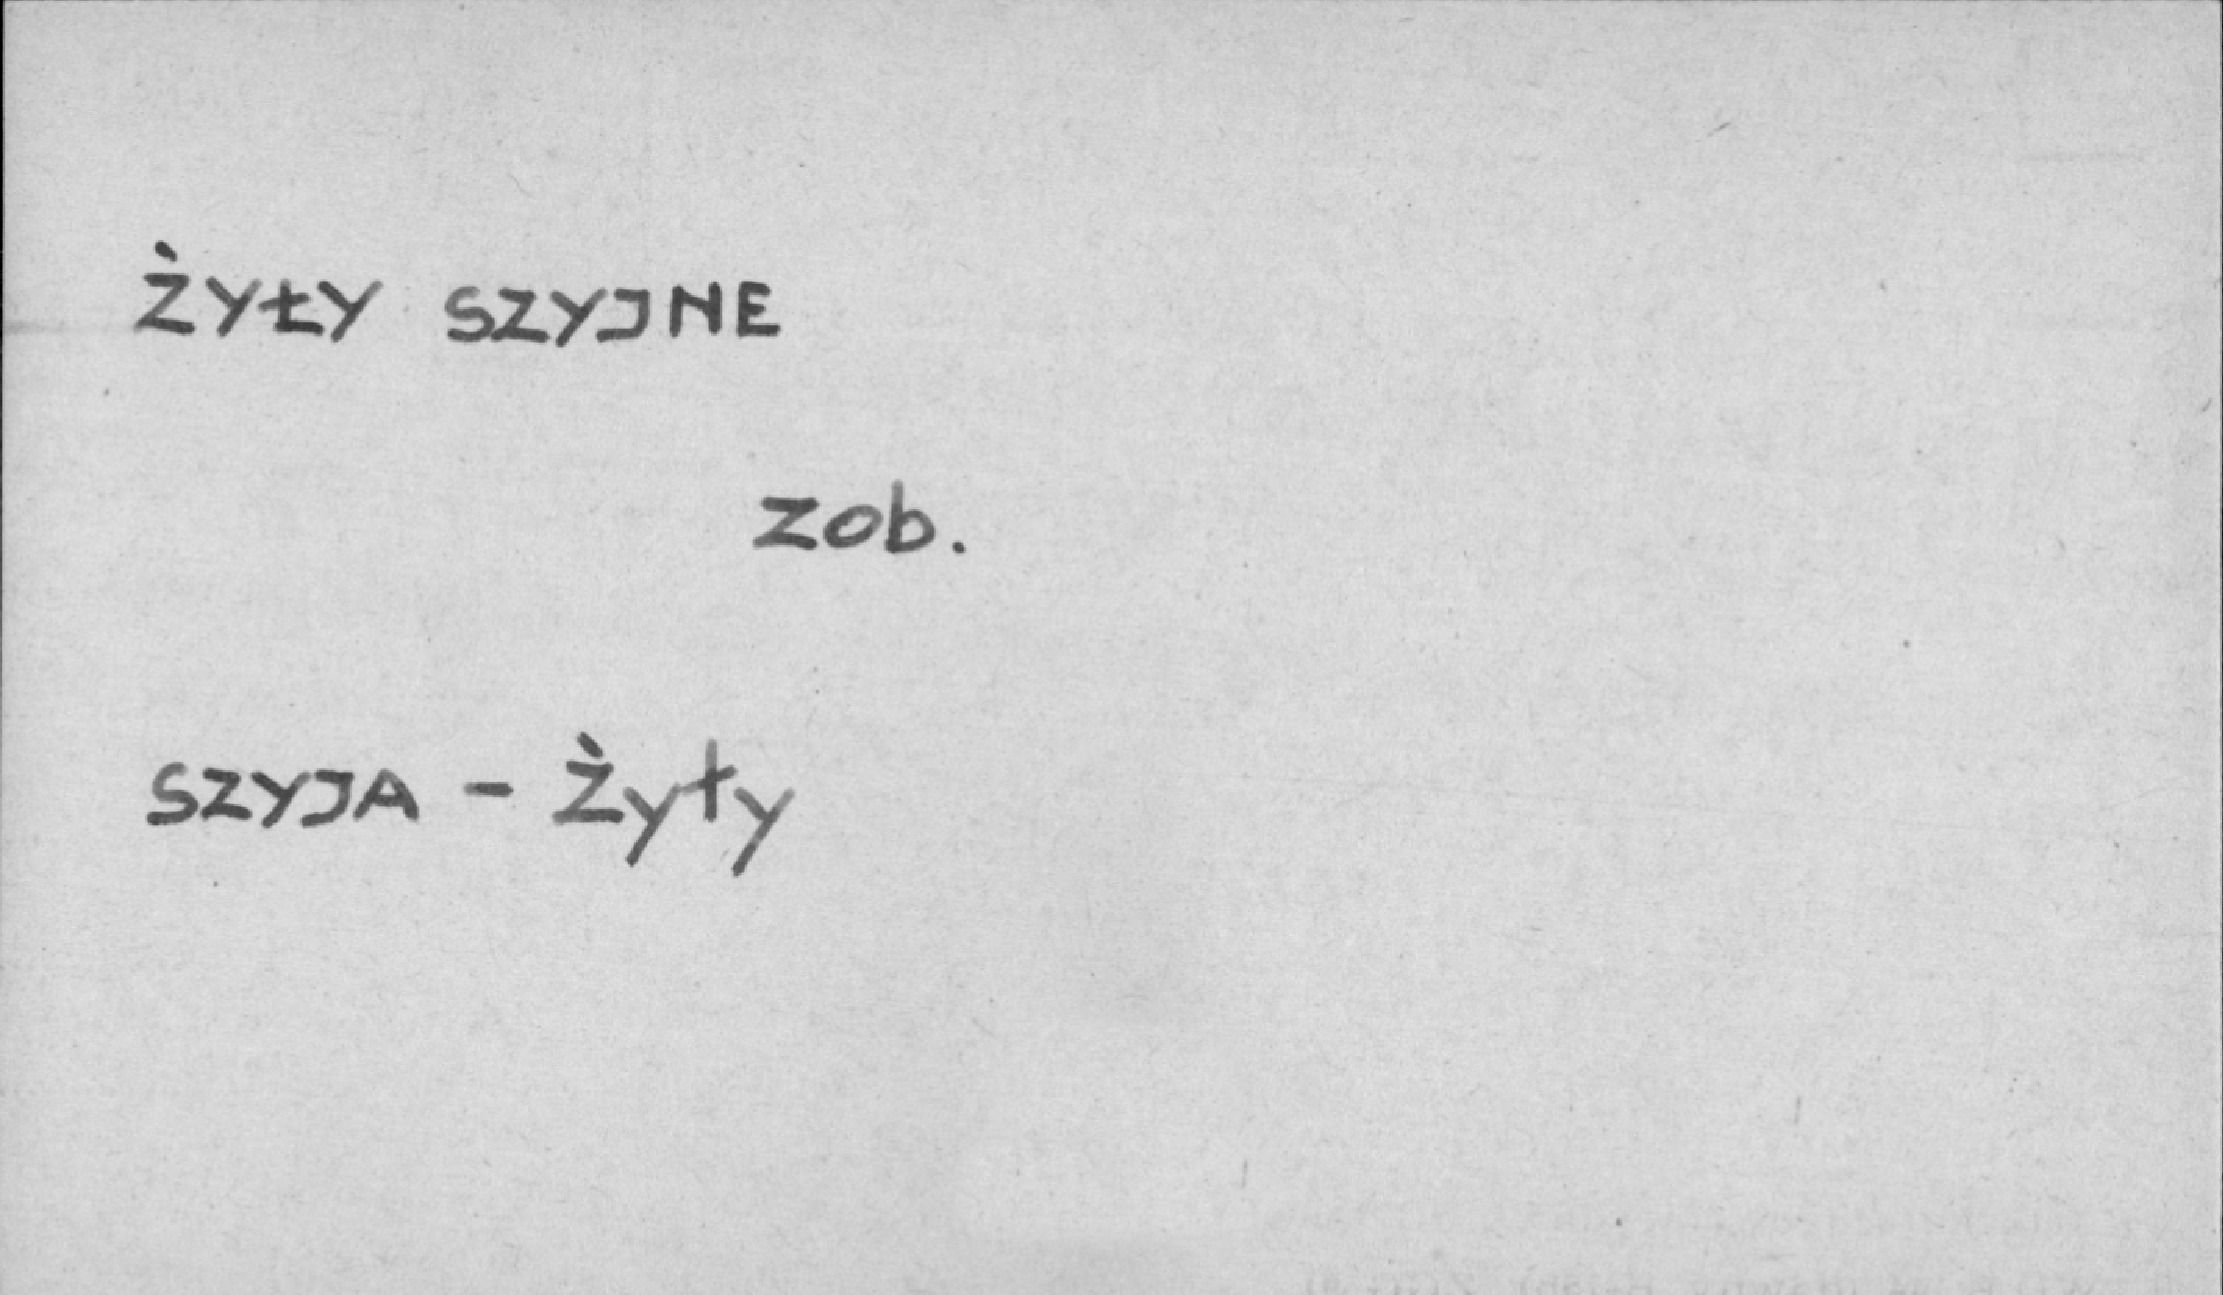 ŻYŁY SZYJNE
zob.
SZYJA - Żyły